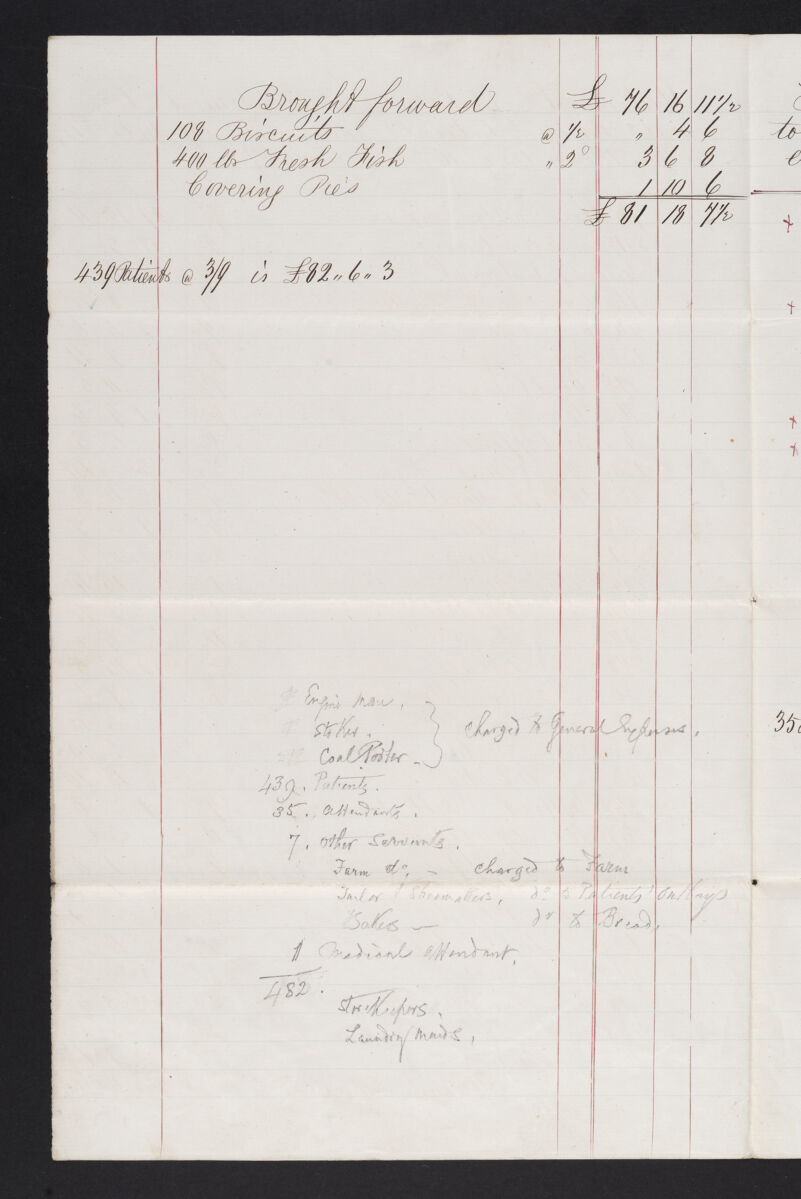 Brought forward £ 76 16 11½
108 Biscuits @ ½ " 4 6
400 lbs Fresh Fish " 2ᵈ 3 6 8
Covering Pie's 1 10 6
£ 81 18 7½
439 Patients @ 3/9 is £82 " 6 " 3
Engine man.
Stoker. } charged to General Expenses.
Coal Porter
439. Patients.
35. Attendants.
7. other Servants.
Farm dº. - charged to Farm
Tailor & Shoemakers, dº to Patients'
Bakers - dº to Bread.
1 Medical Attendant.
482.
Storekeepers.
Laundry Maids,
to
35